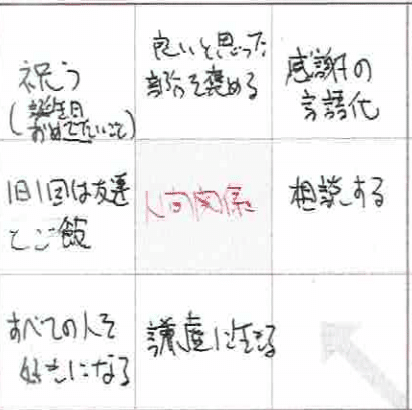 祝う
(誕生日
おめでたいこと)
良いと思った
部分を褒める
感謝の
言語化
1日1回は友達
とご飯
人間関係
相談する
すべての人を
好きになる
謙虚に生きる